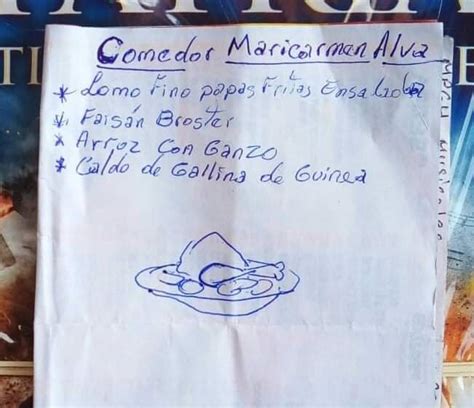 Comedor Maricarmen Alva
* Lomo Fino papas Fritas Ensalada
* Faisán Broster
* Arroz con Ganzo
* Caldo de Gallina de Guinea